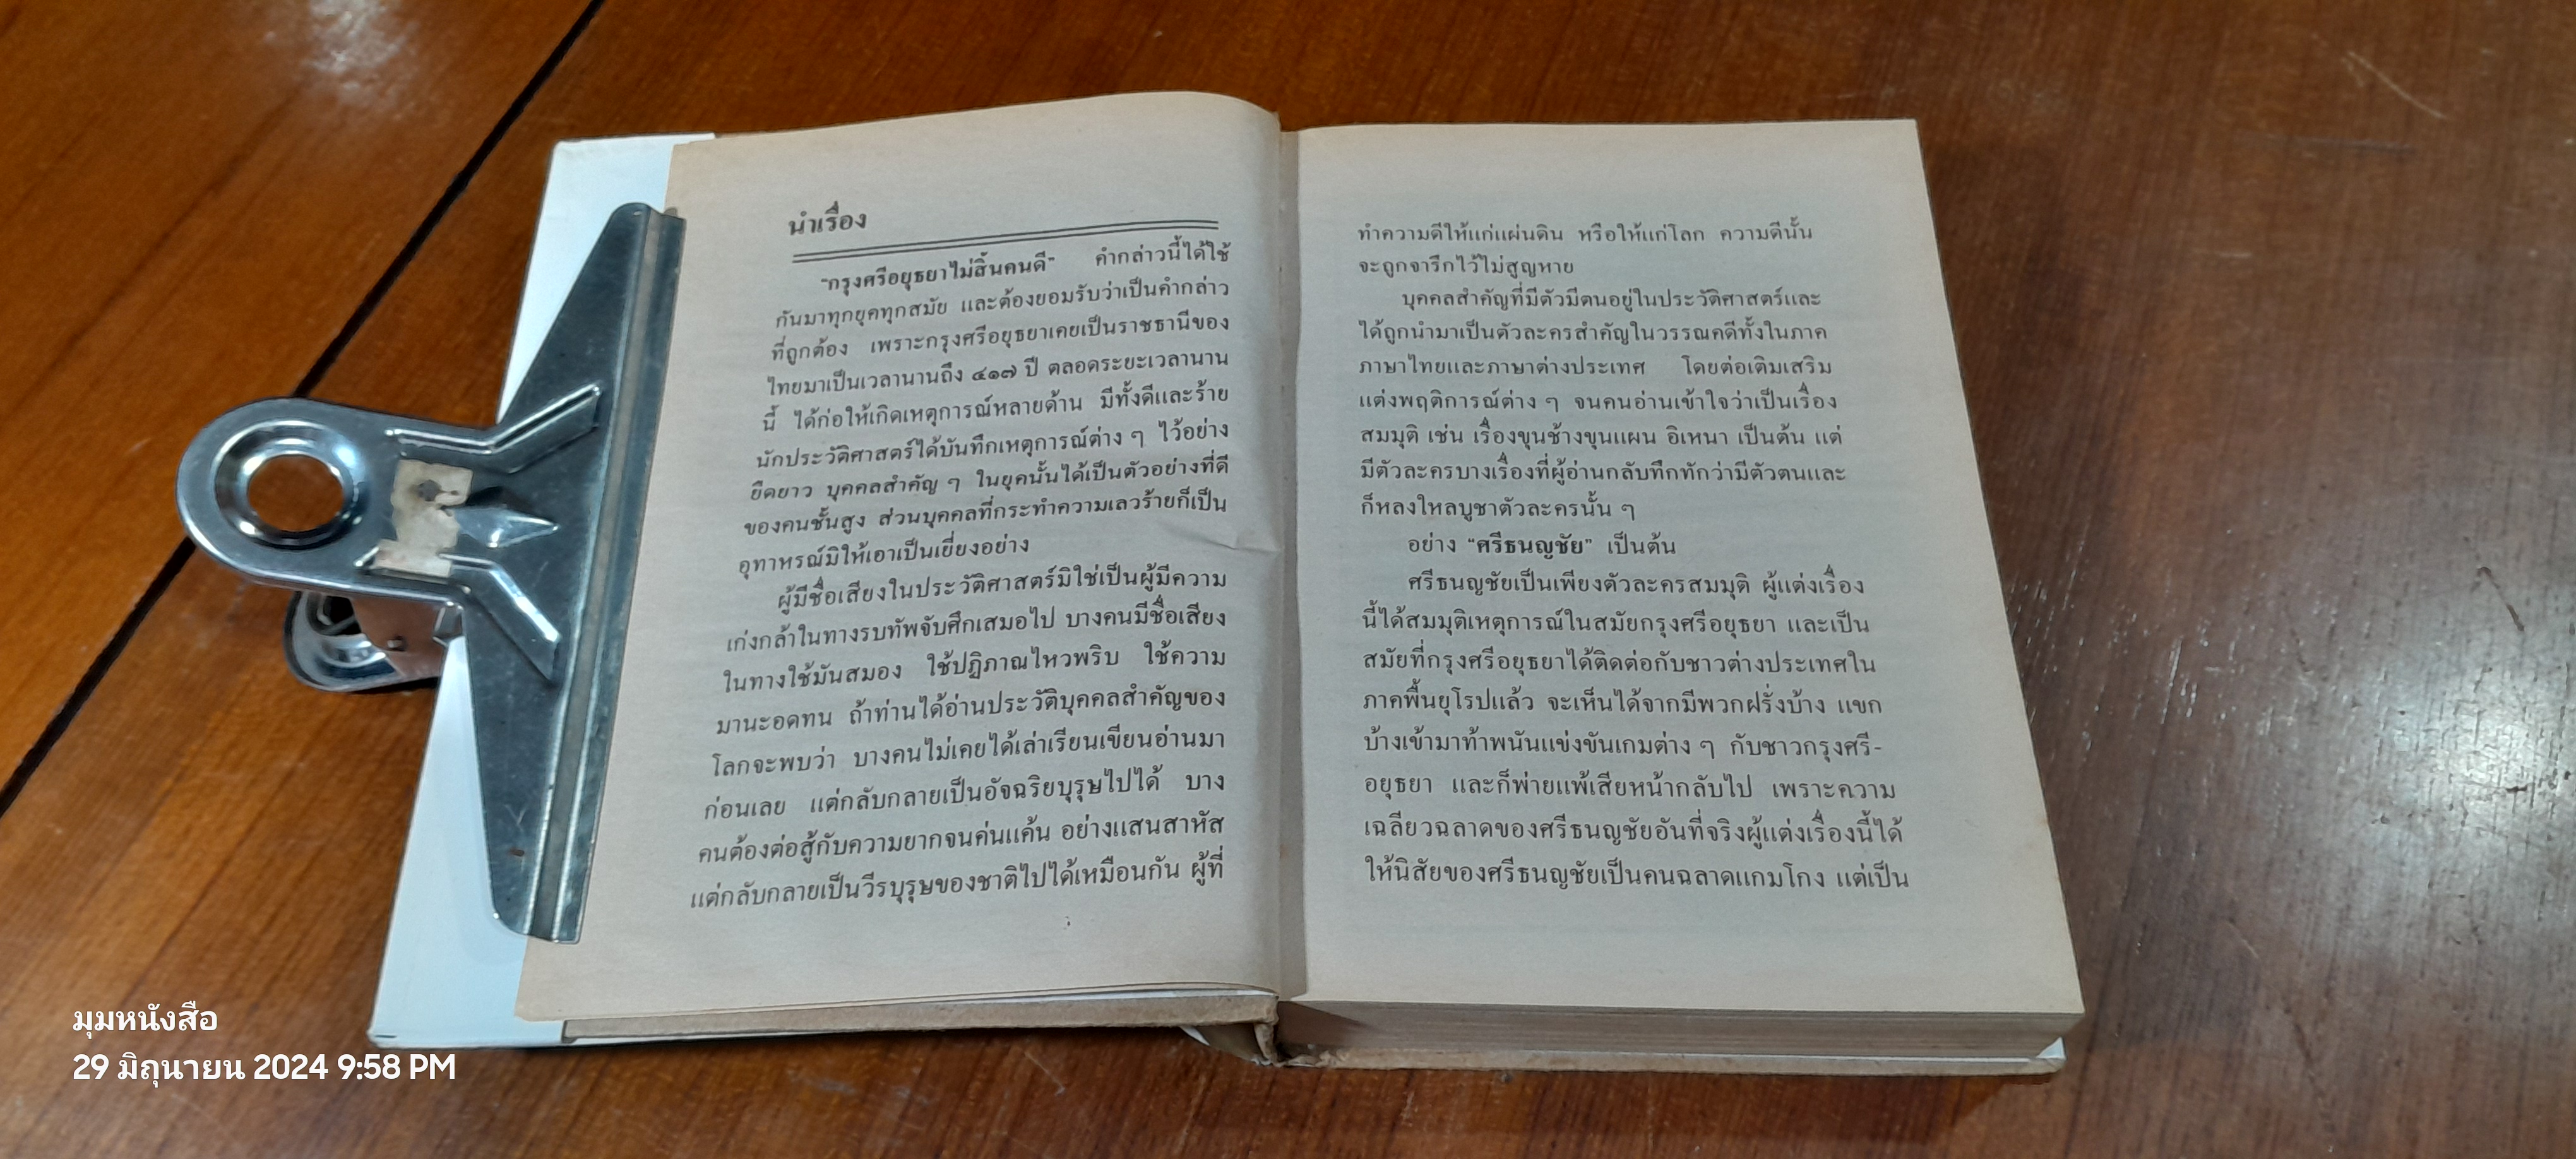 นำเรื่อง
"กรุงศรีอยุธยาไม่สิ้นคนดี" คำกล่าวนี้ได้ใช้
กันมาทุกยุคทุกสมัย และต้องยอมรับว่าเป็นคำกล่าว
ที่ถูกต้อง เพราะกรุงศรีอยุธยาเคยเป็นราชธานีของ
ไทยมาเป็นเวลานานถึง ๔๑๗ ปี ตลอดระยะเวลานาน
นี้ ได้ก่อให้เกิดเหตุการณ์หลายด้าน มีทั้งดีและร้าย
นักประวัติศาสตร์ได้บันทึกเหตุการณ์ต่าง ๆ ไว้อย่าง
ยืดยาว บุคคลสำคัญ ๆ ในยุคนั้นได้เป็นตัวอย่างที่ดี
ของคนชั้นสูง ส่วนบุคคลที่กระทำความเลวร้ายก็เป็น
อุทาหรณ์มิให้เอาเป็นเยี่ยงอย่าง
ผู้มีชื่อเสียงในประวัติศาสตร์มิใช่เป็นผู้มีความ
เก่งกล้าในทางรบทัพจับศึกเสมอไป บางคนมีชื่อเสียง
ในทางใช้มันสมอง ใช้ปฏิภาณไหวพริบ ใช้ความ
มานะอดทน ถ้าท่านได้อ่านประวัติบุคคลสำคัญของ
โลกจะพบว่า บางคนไม่เคยได้เล่าเรียนเขียนอ่านมา
ก่อนเลย แต่กลับกลายเป็นอัจฉริยบุรุษไปได้ บาง
คนต้องต่อสู้กับความยากจนค่นแค้น อย่างแสนสาหัส
แต่กลับกลายเป็นวีรบุรุษของชาติไปได้เหมือนกัน ผู้ที่
ทำความดีให้แก่แผ่นดิน หรือให้แก่โลก ความดีนั้น
จะถูกจารึกไว้ไม่สูญหาย
บุคคลสำคัญที่มีตัวมีตนอยู่ในประวัติศาสตร์และ
ได้ถูกนำมาเป็นตัวละครสำคัญในวรรณคดีทั้งในภาค
ภาษาไทยและภาษาต่างประเทศ โดยต่อเติมเสริม
แต่งพฤติการณ์ต่าง ๆ จนคนอ่านเข้าใจว่าเป็นเรื่อง
สมมุติ เช่น เรื่องขุนช้างขุนแผน อิเหนา เป็นต้น แต่
มีตัวละครบางเรื่องที่ผู้อ่านกลับทึกทักว่ามีตัวตนและ
ก็หลงใหลบูชาตัวละครนั้น ๆ
อย่าง "ศรีธนญชัย" เป็นต้น
ศรีธนญชัยเป็นเพียงตัวละครสมมุติ ผู้แต่งเรื่อง
นี้ได้สมมุติเหตุการณ์ในสมัยกรุงศรีอยุธยา และเป็น
สมัยที่กรุงศรีอยุธยาได้ติดต่อกับชาวต่างประเทศใน
ภาคพื้นยุโรปแล้ว จะเห็นได้จากมีพวกฝรั่งบ้าง แขก
บ้างเข้ามาท้าพนันแข่งขันเกมต่าง ๆ กับชาวกรุงศรี-
อยุธยา และก็พ่ายแพ้เสียหน้ากลับไป เพราะความ
เฉลียวฉลาดของศรีธนญชัยอันที่จริงผู้แต่งเรื่องนี้ได้
ให้นิสัยของศรีธนญชัยเป็นคนฉลาดแกมโกง แต่เป็น
มุมหนังสือ
29 มิถุนายน 2024 9:58 PM